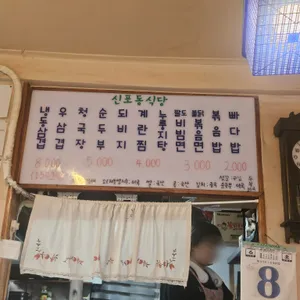 신포동식당
냉동삼겹
우삼겹
청국장
순두부
되비지
계란찜
누룽지탕
팔도비빔면
불닭볶음면
볶음밥
빠다밥
8,000
5,000
4,000
3,000
2,000
8